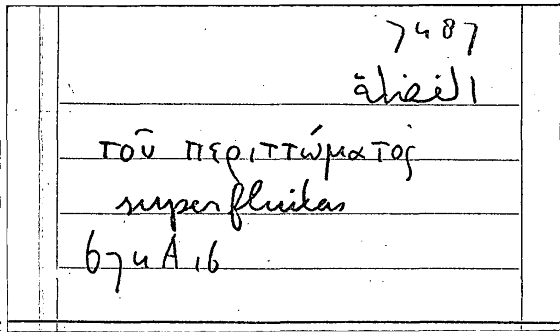 7487
الفضلة
τοῦ περιττώματος
superfluitas
674 A 16